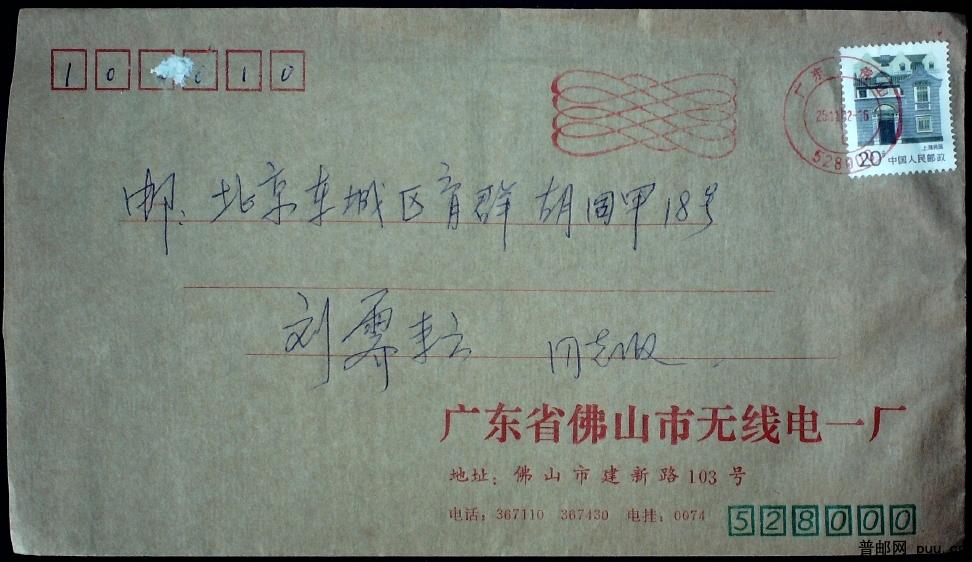 10 010
广东
528000
上海民居
20分 中国人民邮政
邮: 北京东城区育群胡同甲18号
刘霁 同志收
广东省佛山市无线电一厂
地址: 佛山市建新路103号
电话: 367110 367430 电挂: 0074
528000
普邮网 puu.c